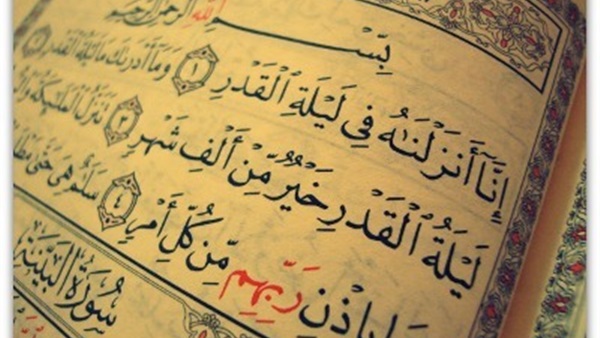 بِسْمِ ٱللَّهِ ٱلرَّحْمَٰنِ ٱلرَّحِيمِ
إِنَّآ أَنزَلْنَٰهُ فِى لَيْلَةِ ٱلْقَدْرِ ١ وَمَآ أَدْرَىٰكَ مَا لَيْلَةُ ٱلْقَدْرِ ٢
لَيْلَةُ ٱلْقَدْرِ خَيْرٌ مِّنْ أَلْفِ شَهْرٍ ٣ تَنَزَّلُ ٱلْمَلَٰٓئِكَةُ
بِإِذْنِ رَبِّهِم مِّن كُلِّ أَمْرٍ ٤ سَلَٰمٌ هِىَ حَتَّىٰ
سُورَةُ ٱلْبَيِّنَةِ